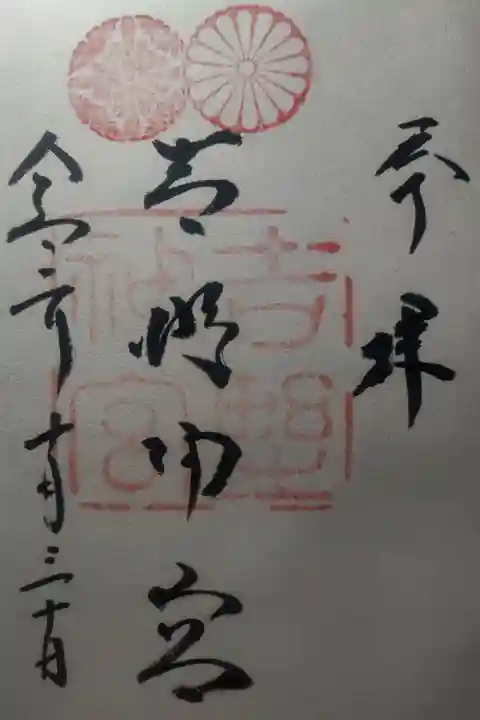 奉拝
吉野神宮
令和三年十月三十日
吉野神宮